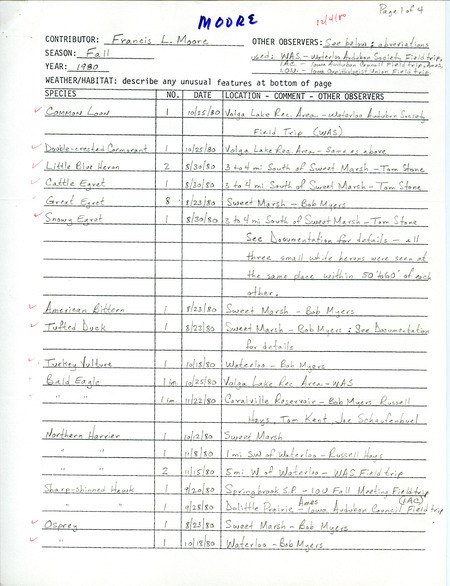 Page 1 of 4
MOORE
12/4/80
CONTRIBUTOR: Francis L. Moore OTHER OBSERVERS: See below; abreviations
SEASON: Fall used: WAS - Waterloo Audubon Society Field trip,
YEAR: 1980 IAC - Iowa Audubon Council Field trip, Ames
IOU - Iowa Ornithologist Union Field trip
WEATHER/HABITAT: describe any unusual features at bottom of page
SPECIES NO. DATE LOCATION - COMMENT - OTHER OBSERVERS
Common Loon 1 10/25/80 Volga Lake Rec. Area - Waterloo Audubon Society
Field Trip (WAS)
Double-crested Cormorant 1 10/25/80 Volga Lake Rec. Area - Same as above
Little Blue Heron 2 8/30/80 3 to 4 mi South of Sweet Marsh - Tom Stone
Cattle Egret 1 8/30/80 3 to 4 mi South of Sweet Marsh - Tom Stone
Great Egret 8 8/23/80 Sweet Marsh - Bob Myers
Snowy Egret 1 8/30/80 3 to 4 mi South of Sweet Marsh - Tom Stone
See Documentation for details - all
three small white herons were seen at
the same place within 50' to 60' of each
other.
American Bittern 1 8/23/80 Sweet Marsh - Bob Myers
Tufted Duck 1 8/23/80 Sweet Marsh - Bob Myers; See Documentation
for details
Turkey Vulture 1 10/18/80 Waterloo - Bob Myers
Bald Eagle 1 im. 10/25/80 Volga Lake Rec. Area - WAS
" " 1 im. 11/22/80 Coralville Reservoir - Bob Myers, Russell
Hays, Tom Kent, Joe Schaufenbuel
Northern Harrier 1 10/12/80 Sweet Marsh
" " 1 11/8/80 1 mi SW of Waterloo - Russell Hays
" " 2 11/15/80 5 mi W of Waterloo - WAS Field trip
Sharp-shinned Hawk 1 9/20/80 Springbrook S.P. - IOU Fall Meeting Field trip
" " 1 9/28/80 Dolittle Prairie - Ames - Iowa Audubon Council Field trip (IAC)
Osprey 1 8/23/80 Sweet Marsh - Bob Myers
" 1 10/18/80 Waterloo - Bob Myers